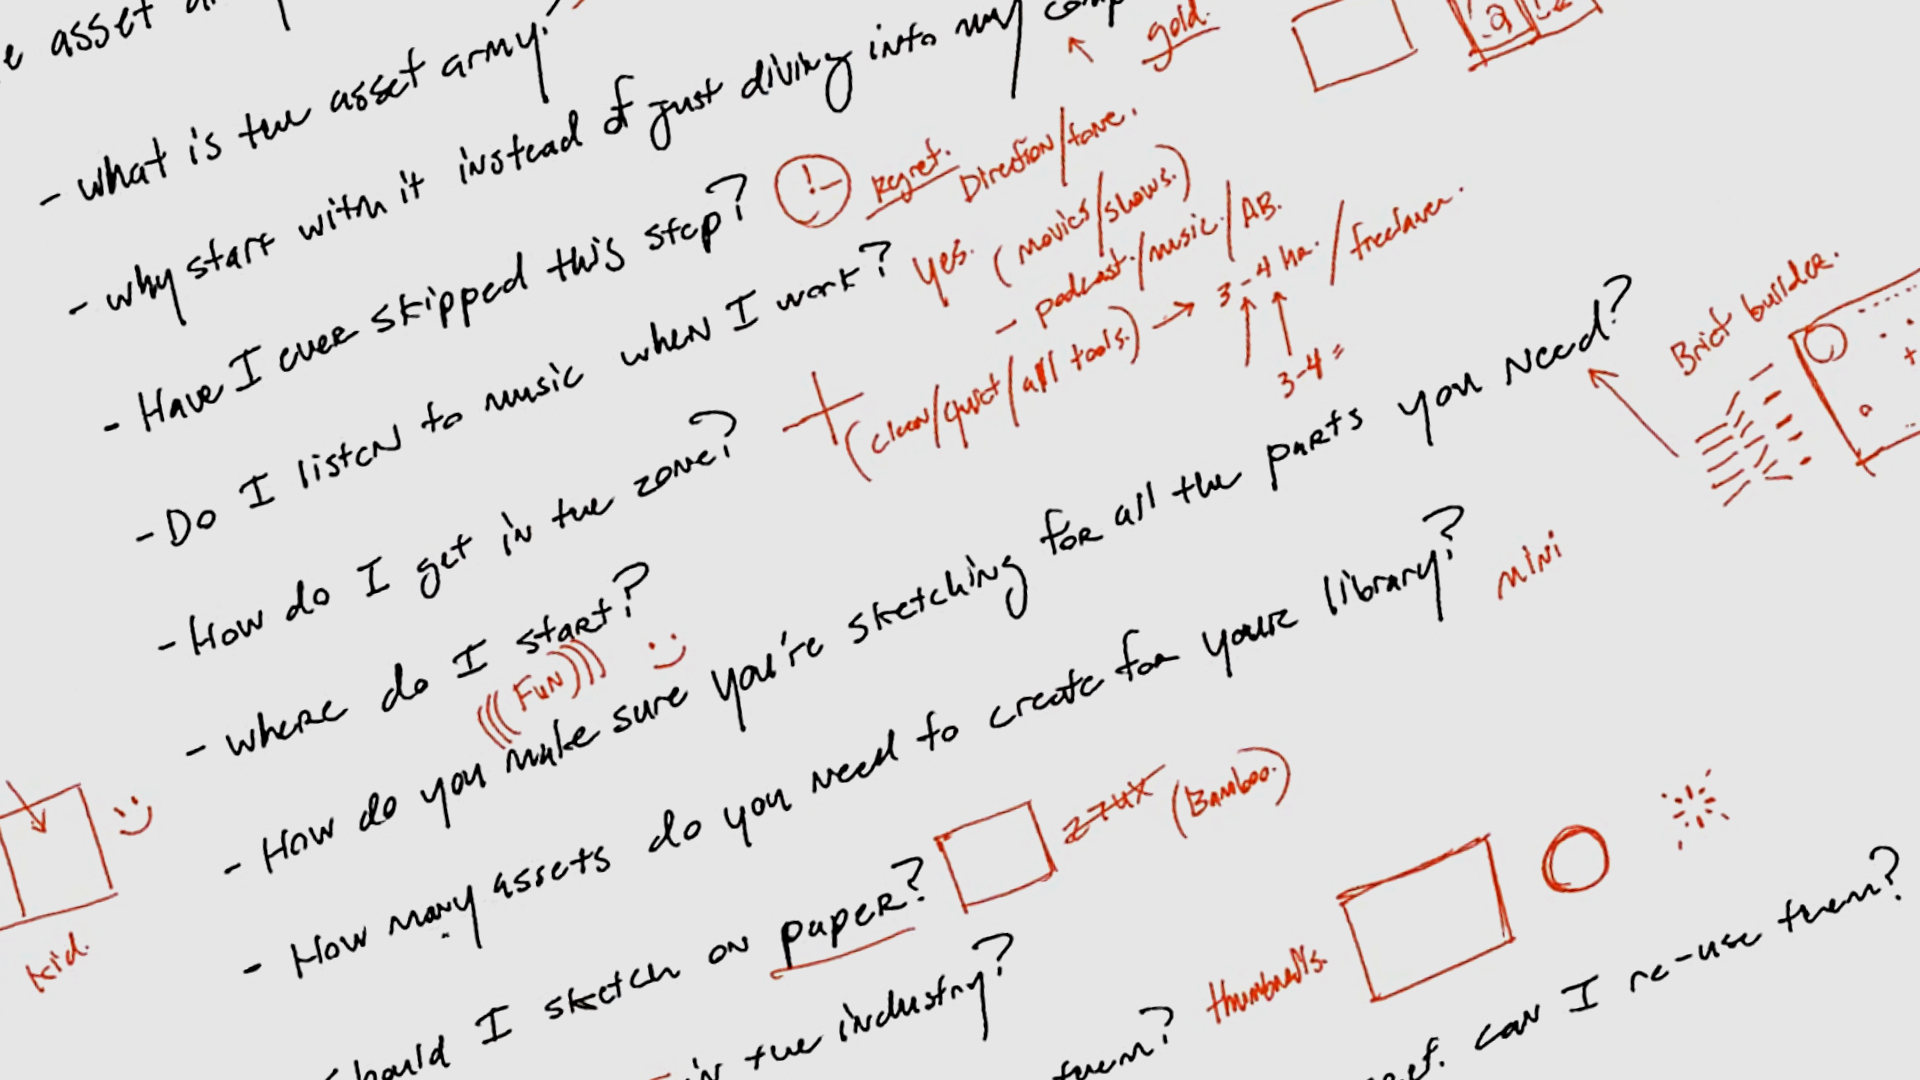 asset
gold.
- what is the asset army?
- why start with it instead of just diving into my
- Have I ever skipped this step? ! Regret. Direction/tone.
- Do I listen to music when I work? yes. (movies/shows.)
- podcast./music/AB.
- How do I get in the zone? (clean/quiet/all tools.) → 3-4 hr. / freelancer.
3-4 =
Brief builder.
- where do I start?
(((FUN)))
- How do you make sure you're sketching for all the parts you need?
- How many assets do you need to create for your library? mini
should I sketch on paper? (Bamboo.)
kid.
in the industry?
them? thumbnails.
ref. can I re-use them?